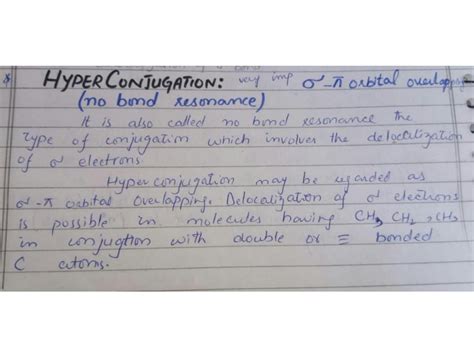 HYPERCONJUGATION: very imp σ-π orbital overlapping
(no bond resonance)
It is also called no bond resonance the
type of conjugation which involves the delocalization
of σ electrons.
Hyperconjugation may be regarded as
σ-π orbital overlapping. Delocalization of σ electrons
is possible in molecules having CH3 CH2, CH3
in conjugtion with double or ≡ bonded
C atoms.